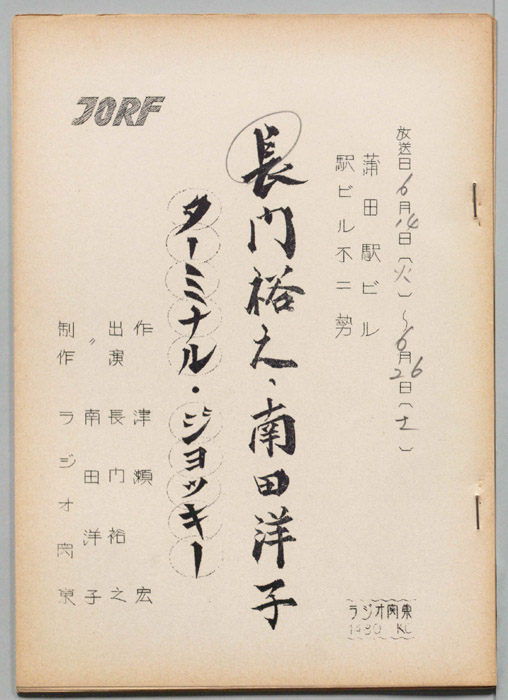 JORF
放送日 6月14日(火)～6月26日(土)
蒲田駅ビル
駅ビル不二勢
長門裕之、南田洋子
ターミナル・ジョッキー
作 津瀬宏
出演 長門裕之
〃 南田洋子
制作 ラジオ関東
ラジオ関東
1430 KC